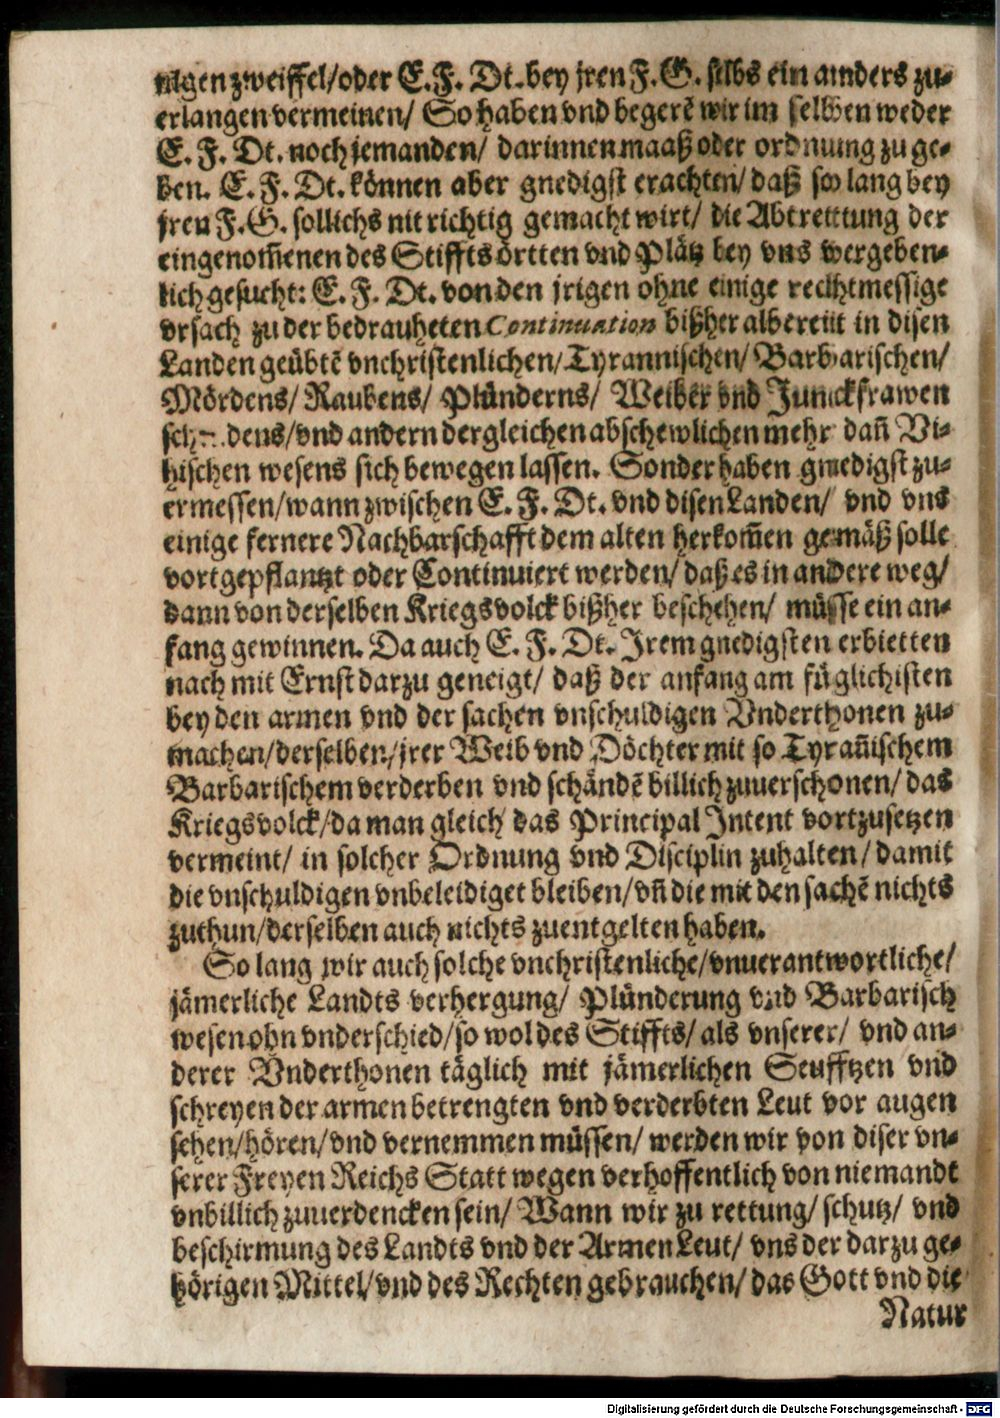 nigen zweiffel/oder E. F. Dt. bey jren F. G. selbs ein anders zu-
erlangen vermeinen/ So haben vnd begerẽ wir im selben weder
E. F. Dt. noch jemanden/ darinnen maaß oder ordnung zu ge-
ben. E. F. Dt. können aber gnedigst erachten/ daß so lang bey
jren F. G. sollichs nit richtig gemacht wirt/ die Abtrettung der
eingenom̃enen des Stiffts örtten vnd Plätz bey vns vergeben-
lich gesucht: E. F. Dt. von den jrigen ohne einige rechtmessige
vrsach zu der bedrauheten Continuation bißher albereiit in disen
Landen geübtẽ vnchristenlichen/Tyrannischen/ Barbarischen/
Mördens/ Raubens/ Plünderns/ Weiber vnd Junckfrawen
schendens/vnd andern dergleichen abschewlichen mehr dañ Vi-
hischen wesens sich bewegen lassen. Sonder haben gnedigst zu-
ermessen/wann zwischen E. F. Dt. vnd disen Landen/ vnd vns
einige fernere Nachbarschafft dem alten herkom̃en gemäß solle
vortgepflantzt oder Continuiert werden/ daß es in andere weg/
dann von derselben Kriegsvolck bißher beschehen/ müsse ein an-
fang gewinnen. Da auch E. F. Dt. Jrem gnedigsten erbietten
nach mit Ernst darzu geneigt/ daß der anfang am füglichisten
bey den armen vnd der sachen vnschuldigen Vnderthonen zu-
machen/derselben/jrer Weib vnd Döchter mit so Tyrañischem
Barbarischem verderben vnd schändẽ billich zuuerschonen/ das
Kriegsvolck/da man gleich das Principal Intent vortzusetzen
vermeint/ in solcher Ordnung vnd Disciplin zuhalten/ damit
die vnschuldigen vnbeleidiget bleiben/vñ die mit den sachẽ nichts
zuthun/derselben auch nichts zuentgelten haben.
So lang wir auch solche vnchristenliche/vnuerantwortliche/
jämerliche Landts verhergung/ Plünderung vnd Barbarisch
wesen ohn vnderschied/so wol des Stiffts/ als vnserer/ vnd an-
derer Vnderthonen täglich mit jämerlichen Seufftzen vnd
schreyen der armen betrengten vnd verderbten Leut vor augen
sehen/hören/vnd vernemmen müssen/ werden wir von diser vn-
serer Freyen Reichs Statt wegen verhoffentlich von niemandt
vnbillich zuuerdencken sein/ Wann wir zu rettung/ schutz/ vnd
beschirmung des Landts vnd der Armen Leut/ vns der darzu ge-
hörigen Mittel/vnd des Rechten gebrauchen/ das Gott vnd die
Natur
Digitalisierung gefördert durch die Deutsche Forschungsgemeinschaft - DFG